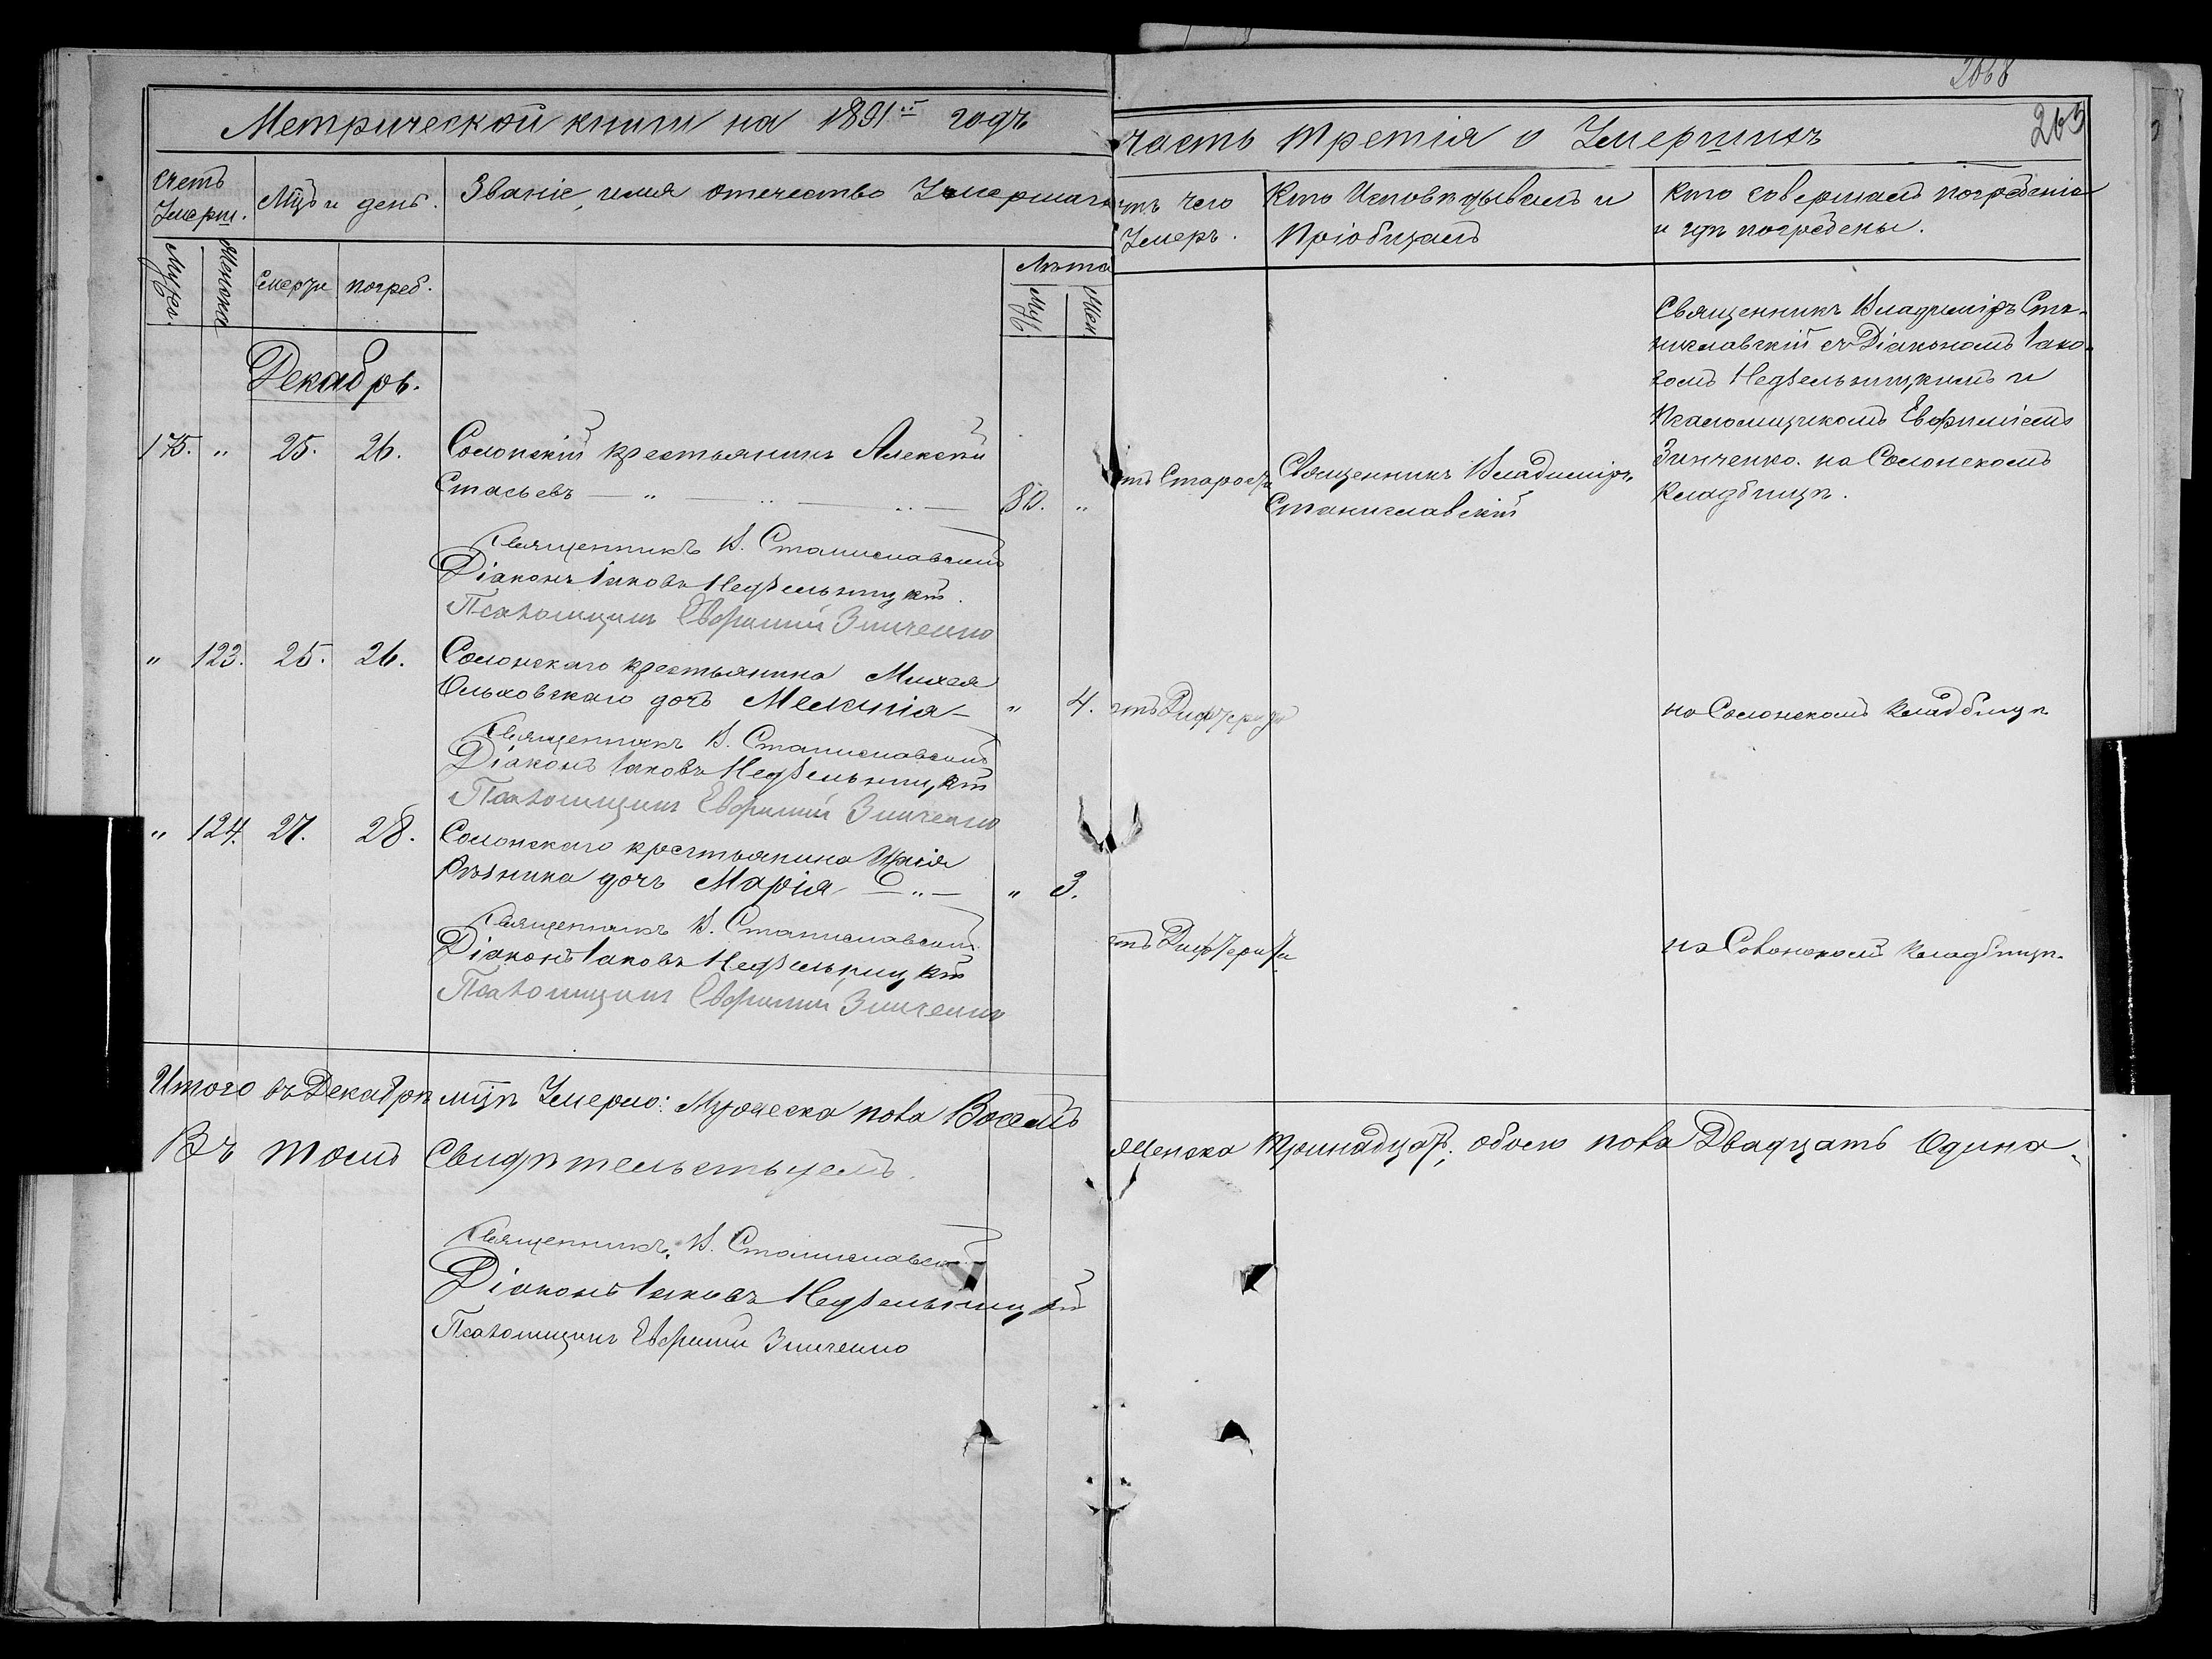 2068
263
Метрической книги на 1891ий годъ
часть третія о Умершихъ
Счетъ Умерш.
Мцъ и день.
Званіе, имя отечество Умершаго
отъ чего Умеръ.
Кто Исповѣдывалъ и Пріобщалъ
Кто совершалъ погребеніе и гдѣ погребены.
Мужес.
Женска
Смерти
погреб.
Лѣта
Муж.
Жен
Декабрь.
175. " 25. 26. Солонскій крестьянинъ Алексѣй
Стасьевъ — " — 80. "
отъ Старости
Священникъ Владиміръ
Станиславскій
Священникъ Владиміръ Ста-
ниславскій съ Діакономъ Іако-
вомъ Недзельницкимъ и
Псаломщикомъ Евфиміемъ
Зинченко. на Солонскомъ
Кладбищѣ.
Священникъ В. Станиславскій
Діаконъ Іаковъ Недзельницкій.
Псаломщикъ Евфимій Зинченко
" 123. 25. 26. Солонскаго крестьянина Михея
Ольховскаго дочь Меланія — " 4.
отъ Дифтерита
на Солонскомъ Кладбищѣ
Священникъ В. Станиславскій
Діаконъ Іаковъ Недзельницкій
Псаломщикъ Евфимій Зинченко
" 124. 27. 28. Солонскаго крестьянина
Рѣзника дочь Марія — " — " 3.
отъ Дифтерита
на Солонскомъ Кладбищѣ.
Священникъ В. Станиславскій
Діаконъ Іаковъ Недзельницкій
Псаломщикъ Евфимій Зинченко
Итого въ Декабрѣ мцѣ Умерло: Мужеска пола Восемь
Женска тринадцать; обоего пола Двадцать Одина.
Въ томъ Свидѣтельствуемъ.
Священникъ В. Станиславскій
Діаконъ Іаковъ Недзельницкій
Псаломщикъ Евфимій Зинченко